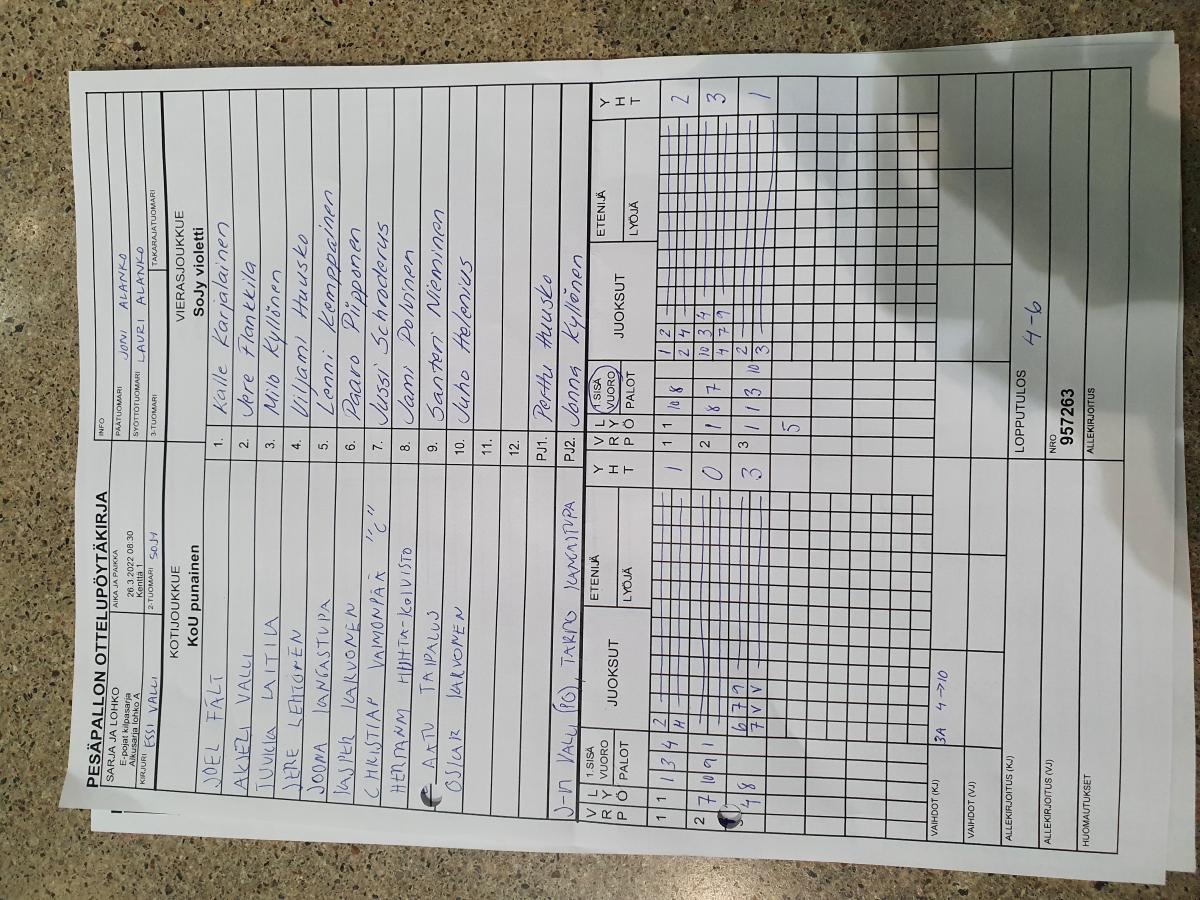 PESÄPALLON OTTELUPÖYTÄKIRJA
SARJA JA LOHKO
E-pojat kilpasarja
Alkusarja lohko A
AIKA JA PAIKKA
26.3.2022 08:30
Kenttä 1
INFO
PÄÄTUOMARI JONI ALANKO
SYÖTTÖTUOMARI LAURI ALANKO
KIRJURI ESSI VALLI
2-TUOMARI SOJY
3-TUOMARI
TAKARAJATUOMARI
KOTIJOUKKUE
KoU punainen
VIERASJOUKKUE
SoJy violetti
JOEL FÄLT
1. Kalle Karjalainen
AKSELI VALLI
2. Jere Flankkila
TUUKKA LAITILA
3. Milo Kyllönen
JERE LEHTONEN
4. Viljami Huusko
JOONA KANGASTUPA
5. Lenni Kemppainen
KASPER KARVONEN
6. Paavo Piipponen
CHRISTIAN VAIMONPÄÄ "C"
7. Jussi Schroderus
HERMANNI HUHTA-KOIVISTO
8. Jami Polvinen
AATU TAIPALUS
9. Santeri Nieminen
OSKAR KARVONEN
10. Juho Helenius
11.
12.
PJ1. Perttu Huusko
J-M VALLI (PO), TARMO KANGASTUPA
PJ2. Janna Kyllönen
V L
R Y
P Ö
1.SISÄ
VUORO
PALOT
JUOKSUT
ETENIJÄ
LYÖJÄ
Y
H
T
V L
R Y
P Ö
1.SISÄ
VUORO
PALOT
JUOKSUT
ETENIJÄ
LYÖJÄ
Y
H
T
1 1 1 3 4 2 1
H
1 1 10 8 1 2 2
2 4
2 7 10 9 1 0
2 1 8 7 10 3 4 3
4 7 9
4 8 6 7 9 3
7 V V
3 1 1 3 10 2 1
3
5
VAIHDOT (KJ) 3A 4→10
VAIHDOT (VJ)
LOPPUTULOS 4-6
ALLEKIRJOITUS (KJ)
NRO
957263
ALLEKIRJOITUS (VJ)
ALLEKIRJOITUS
HUOMAUTUKSET